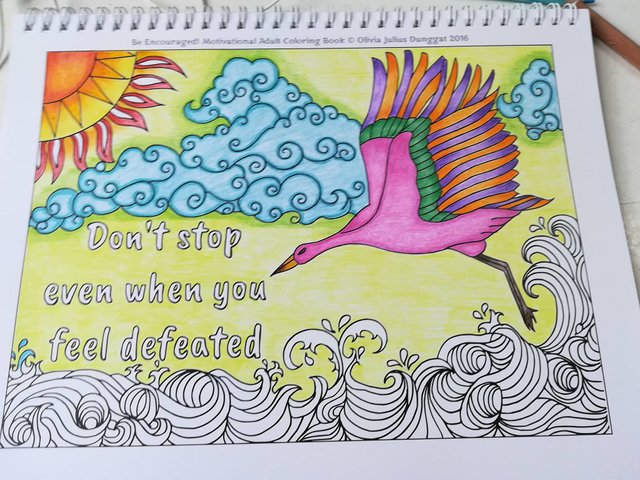 Be Encouraged! Motivational Adult Coloring Book © Olivia Julius Dunggat 2016
Don't stop
even when you
feel defeated